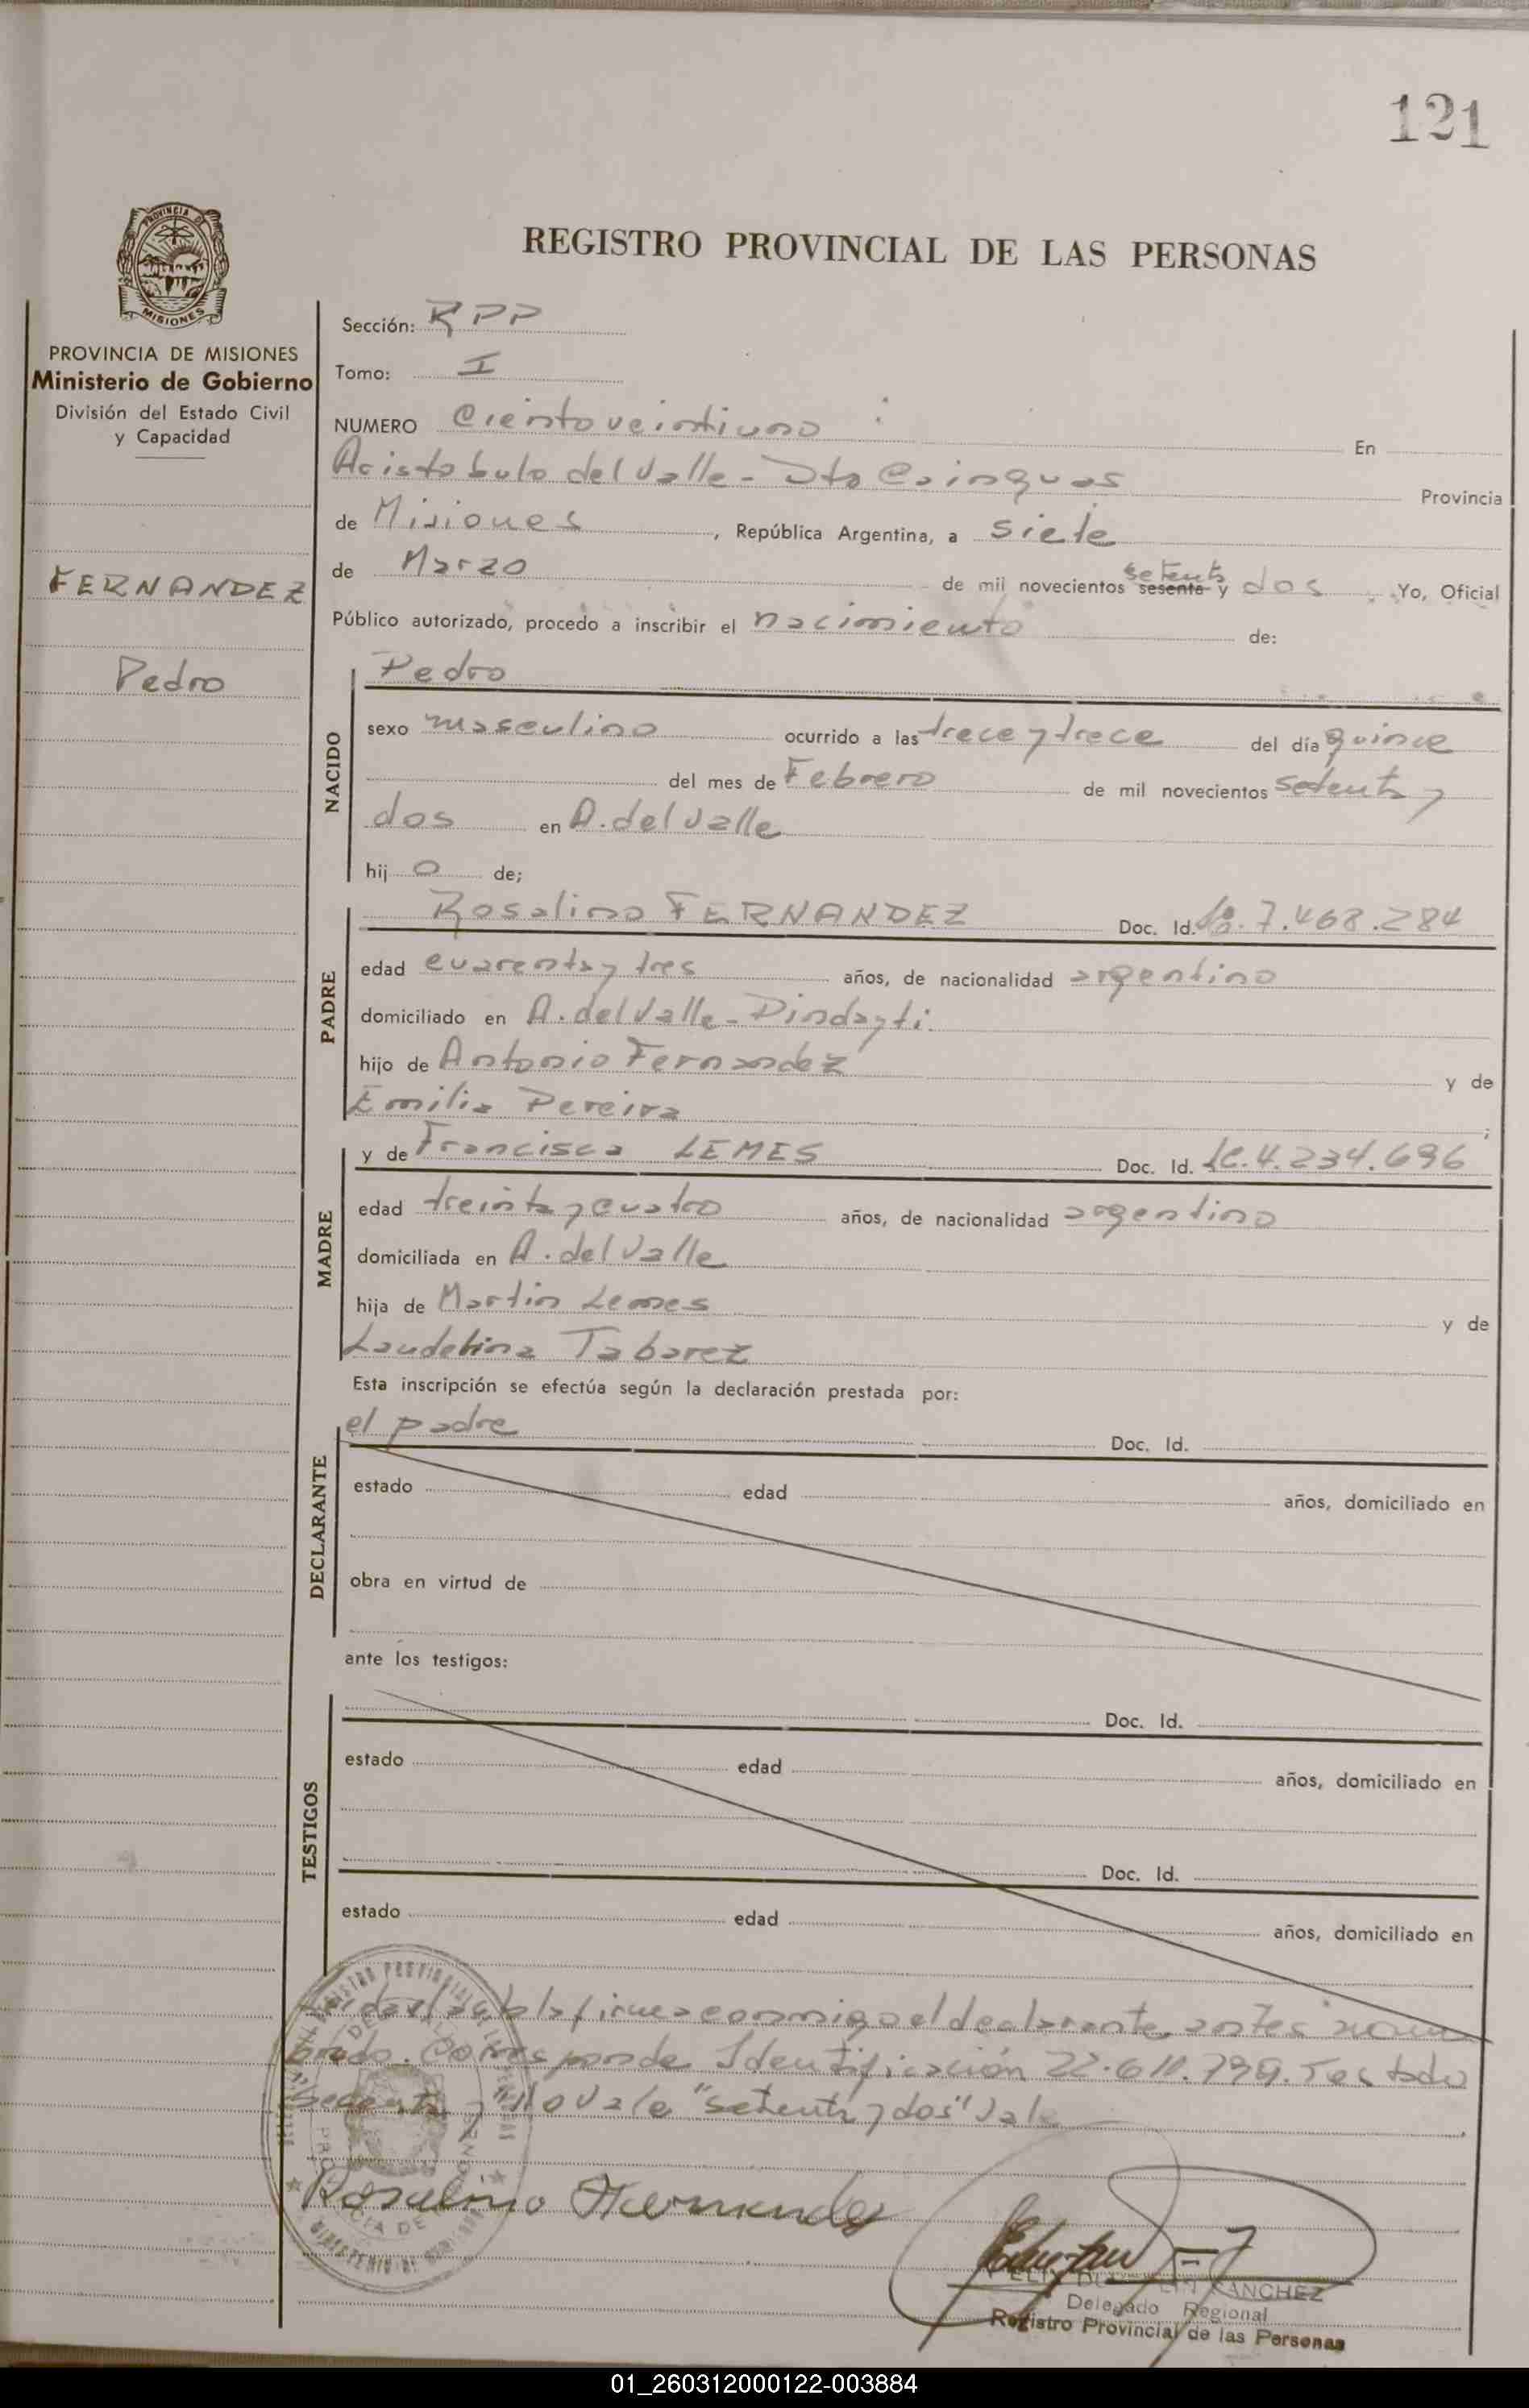 121
REGISTRO PROVINCIAL DE LAS PERSONAS
PROVINCIA DE MISIONES
Ministerio de Gobierno
División del Estado Civil
y Capacidad
FERNANDEZ
Pedro
Sección: RPP
Tomo: I
NUMERO Ciento veintiuno En
Aristobulo del Valle - Dto Cainguas Provincia
de Misiones, República Argentina, a siete
de Marzo de mil novecientos sesenta y setenta dos. Yo, Oficial
Público autorizado, procedo a inscribir el nacimiento de:
NACIDO
Pedro
sexo masculino ocurrido a las trece y trece del día quince
del mes de Febrero de mil novecientos setenta y
dos en A. del Valle
hij o de;
PADRE
Rosalino FERNANDEZ Doc. Id. 7.468.284
edad cuarenta y tres años, de nacionalidad argentino
domiciliado en A. del Valle - Pindayti.
hijo de Antonio Fernandez y de
Emilia Pereira
MADRE
y de Francisca LEMES Doc. Id. LC. 4.234.696
edad treinta y cuatro años, de nacionalidad argentina
domiciliada en A. del Valle
hija de Martin Lemes y de
Laudelina Tabarez
Esta inscripción se efectúa según la declaración prestada por:
DECLARANTE
el padre Doc. Id.
estado edad años, domiciliado en
obra en virtud de
ante los testigos:
TESTIGOS
Doc. Id.
estado edad años, domiciliado en
Doc. Id.
estado edad años, domiciliado en
Leida el acta la firma conmigo el declarante antes nom
brado. Corresponde Identificación 22.611.799. Testado
"sesenta y" No vale "setenta y dos" Vale
Rosalino Fernandez
SANCHEZ
Delegado Regional
Registro Provincial de las Personas
01_260312000122-003884